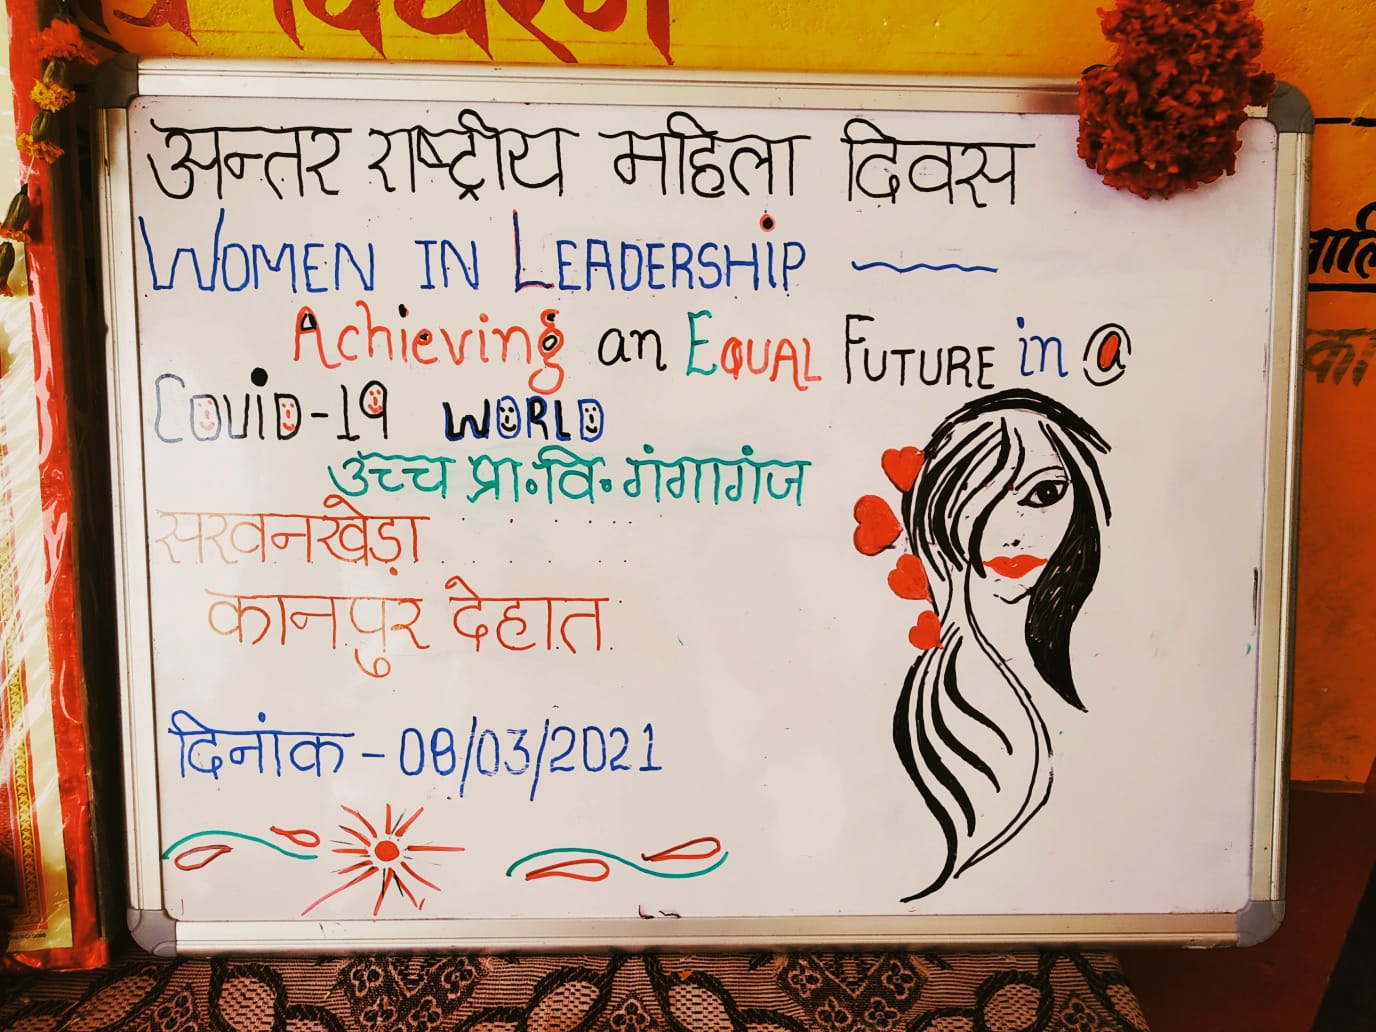 विवरण
अन्तर राष्ट्रीय महिला दिवस
WOMEN IN LEADERSHIP
Achieving an EQUAL FUTURE in a
COVID-19 WORLD
उच्च प्रा.वि.गंगागंज
सरवनखेड़ा
कानपुर देहात
दिनांक - 08/03/2021